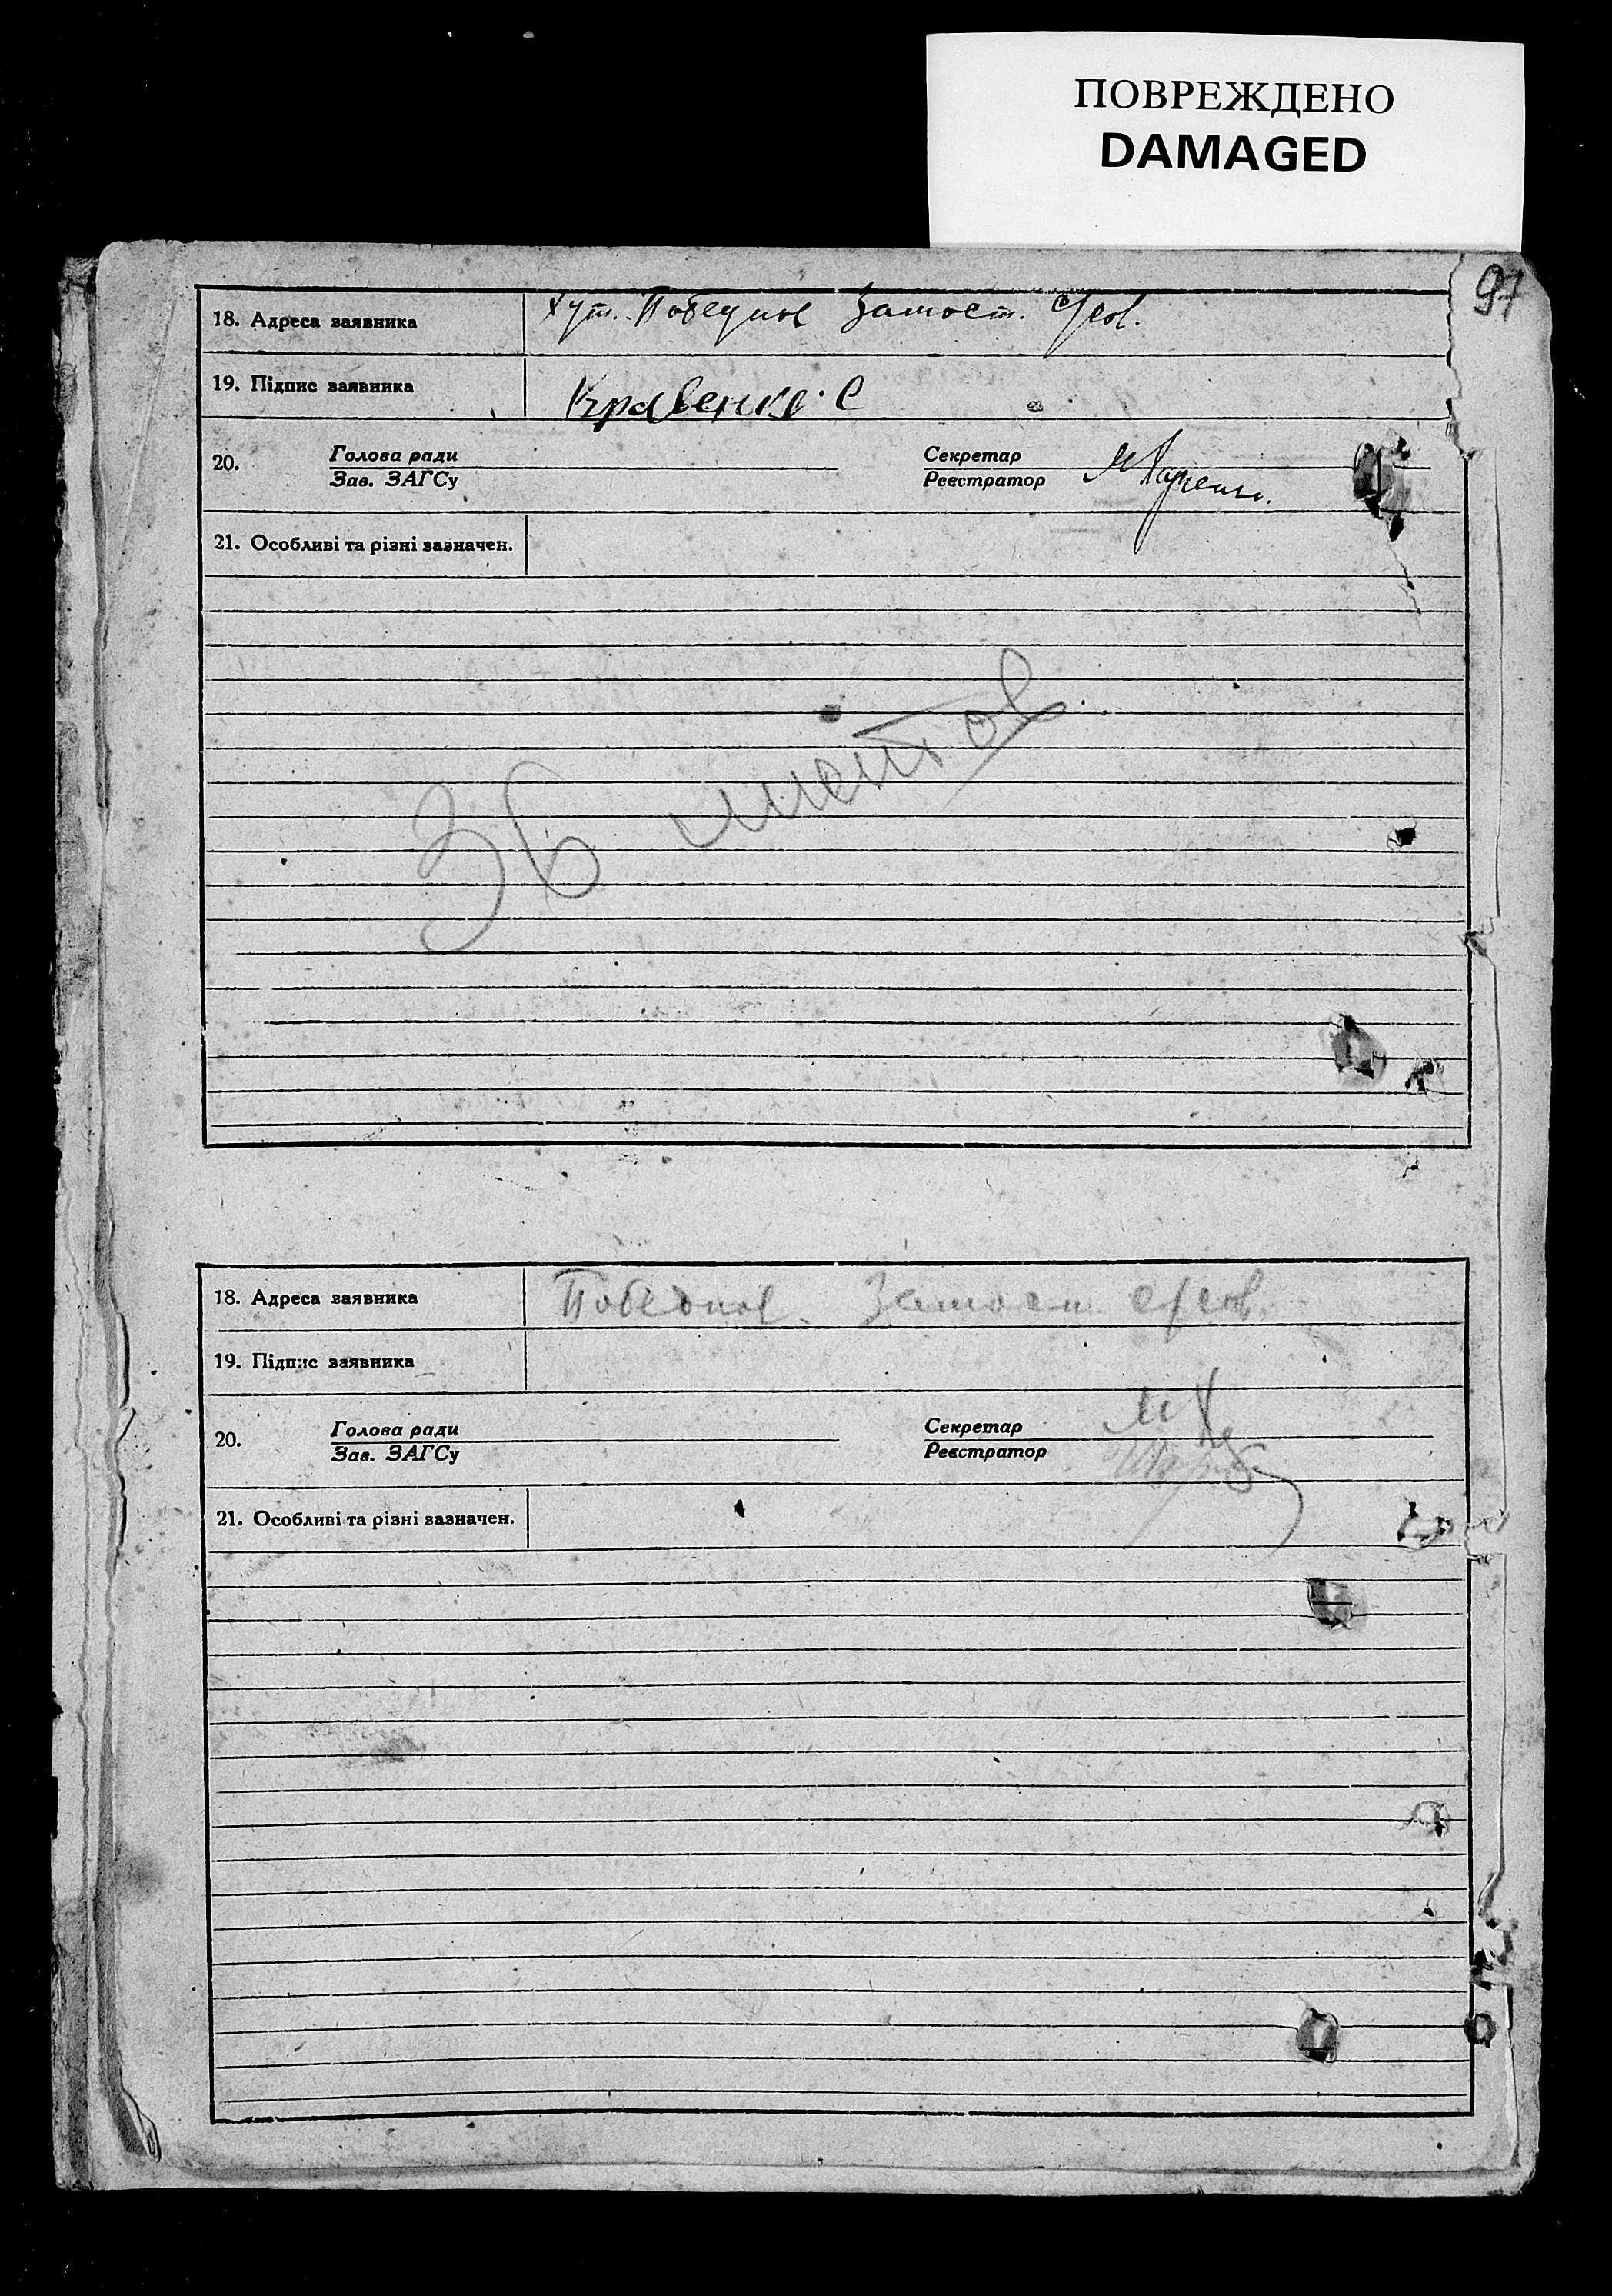 ПОВРЕЖДЕНО
DAMAGED
97
18. Адреса заявника Хут. Победнов Замост. с/сов.
19. Підпис заявника Кравенко С
20. Голова ради Секретар
Зав. ЗАГСу Реєстратор
21. Особливі та різні зазначен.
36 листов
18. Адреса заявника Победнов Замост с/сов.
19. Підпис заявника
20. Голова ради Секретар
Зав. ЗАГСу Реєстратор
21. Особливі та різні зазначен.